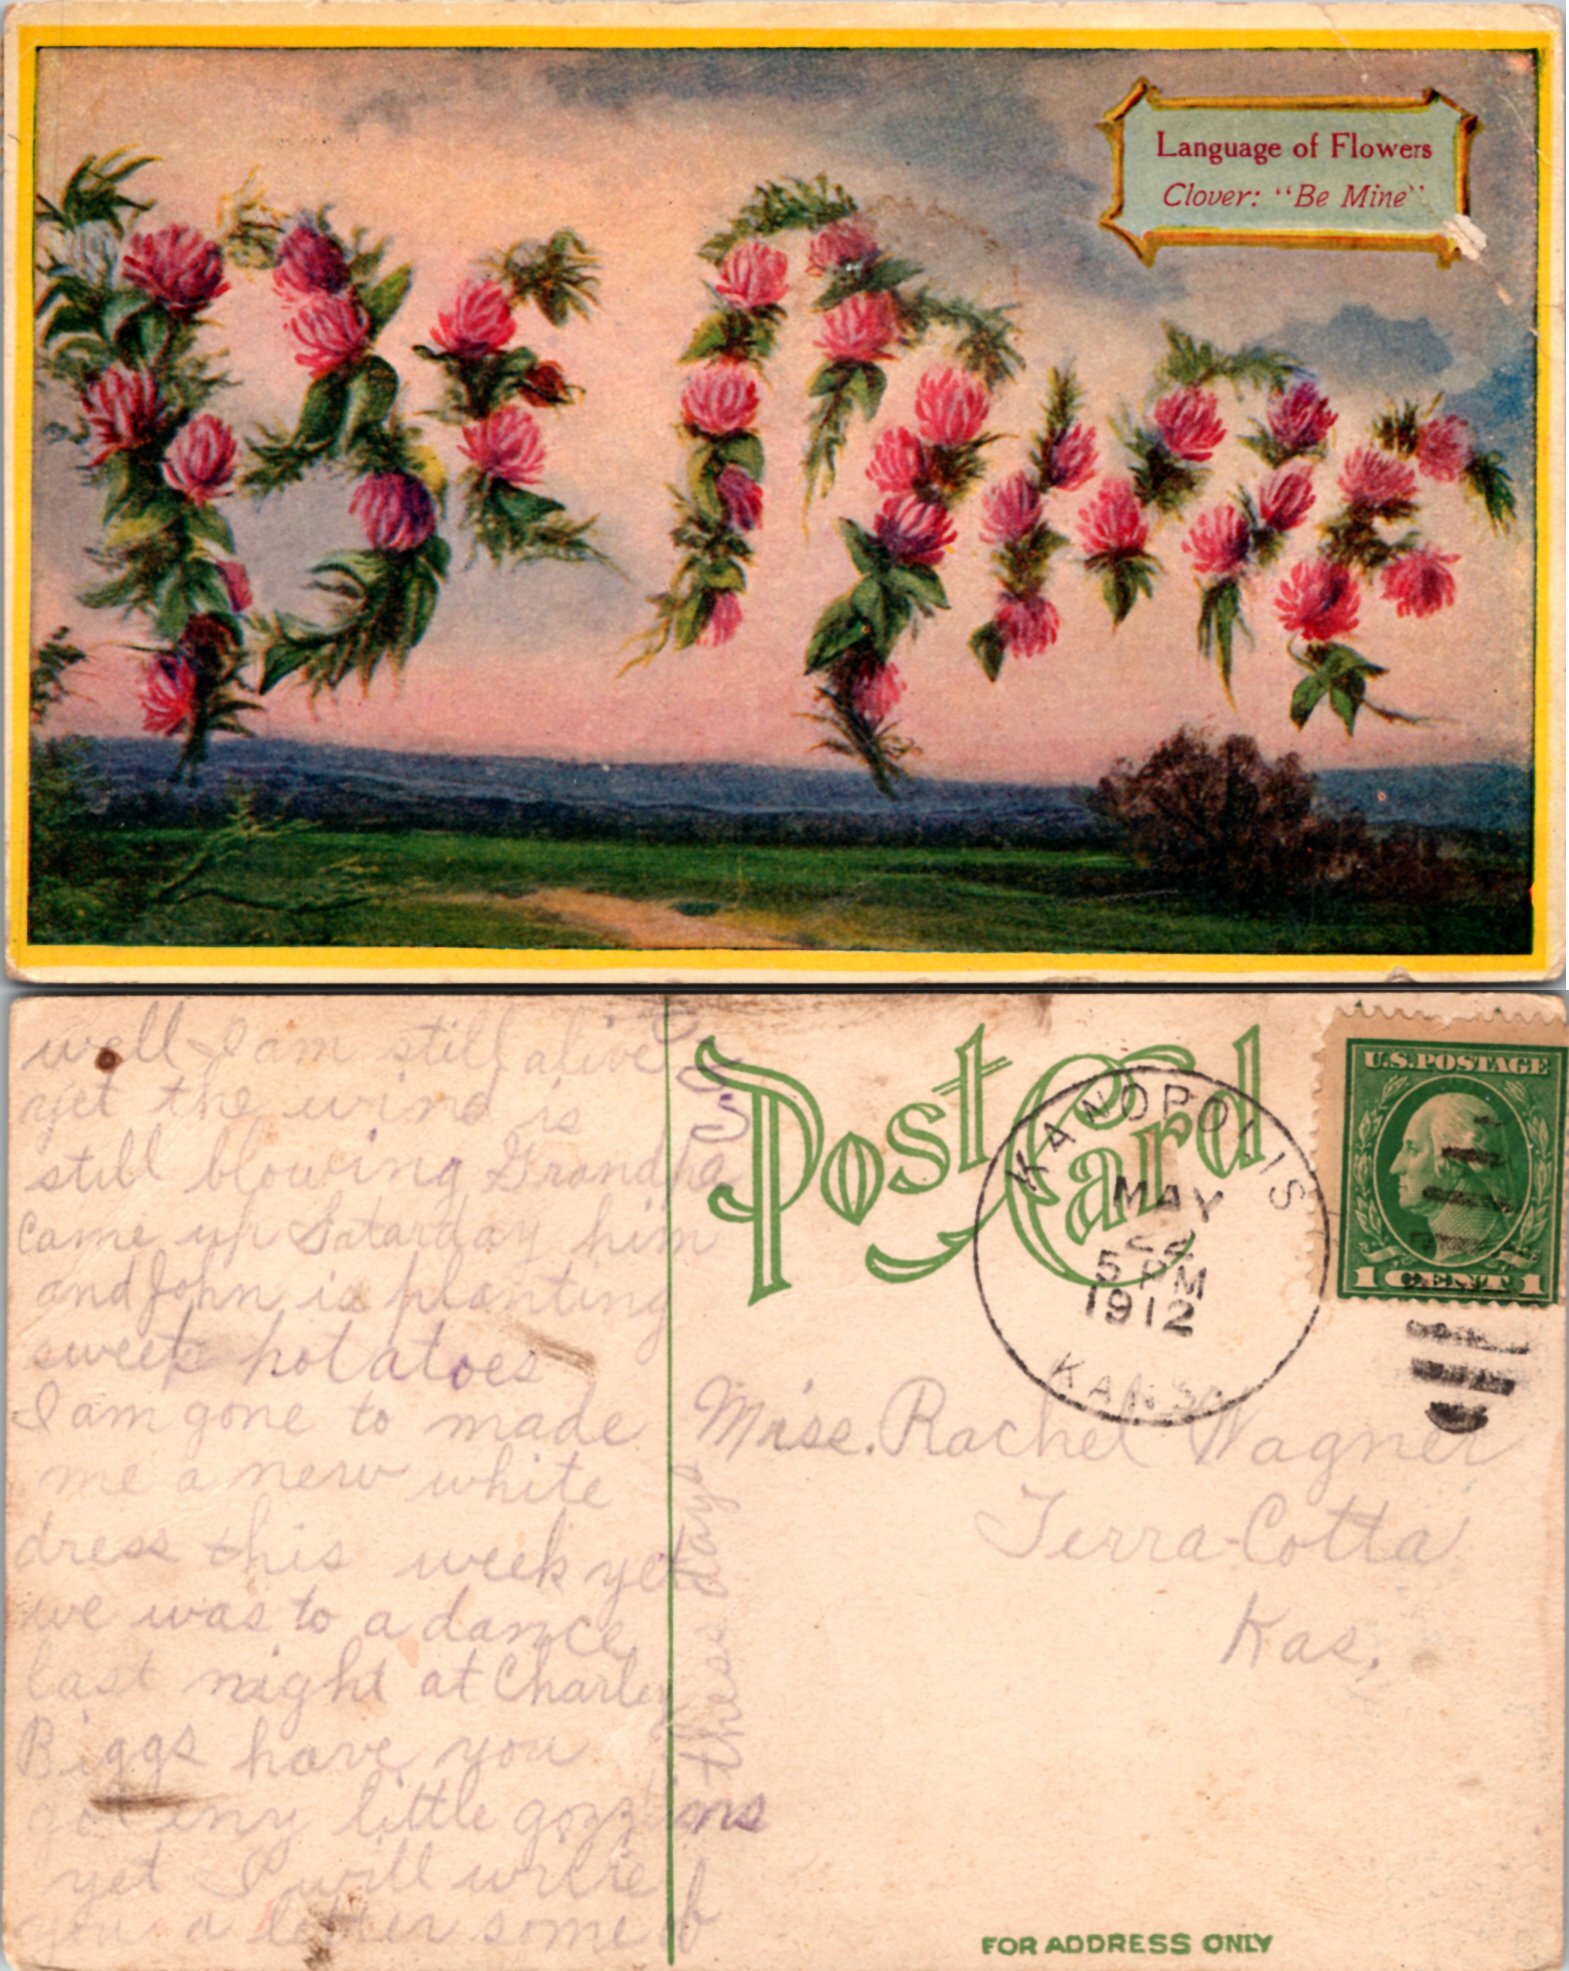 Language of Flowers
Clover: "Be Mine"
BE MINE
well I am still alive
yet the wind is
still blowing Grandpa
came up Satarday him
and John is planting
sweet potatoes
I am gone to made
me a new white
dress this week yet
we was to a dance
last night at Charley
Biggs have you
got eny little gozzlins
yet I will write
you a letter some of
these days
Post Card
KANOPOLIS
MAY
22
5 PM
1912
KANS
U.S. POSTAGE
1 CENT 1
Miss. Rachel Wagner
Terra-Cotta
Kas.
FOR ADDRESS ONLY